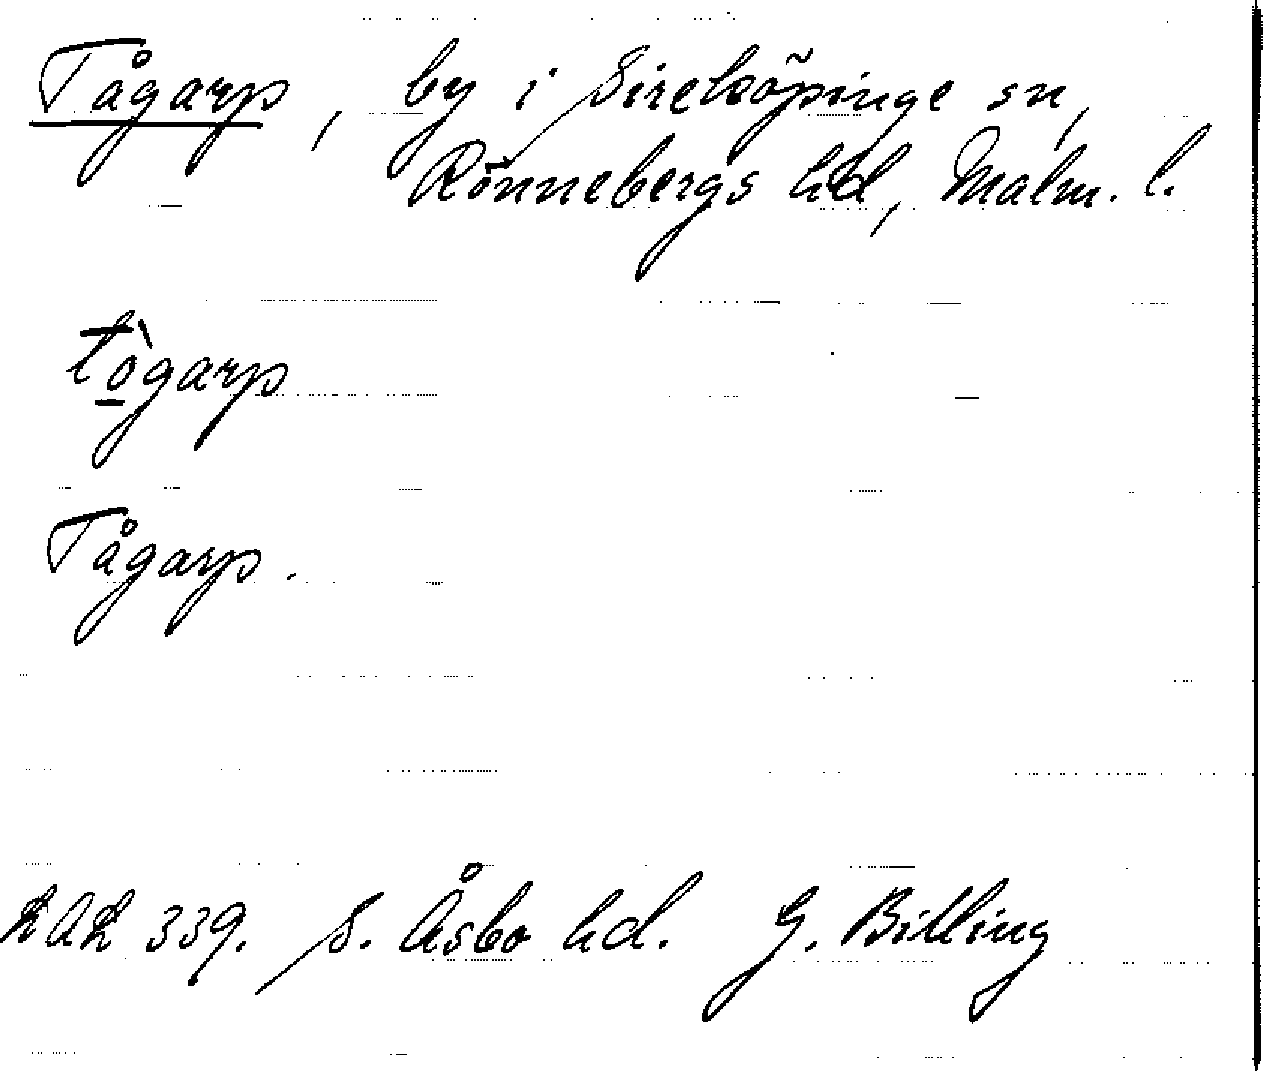 Tågarp, by i Sireköpinge sn,
Rönnebergs hd, Malm. l.
tò̲garp
Tågarp.
LAL 339. S. Åsbo hd. G. Billing